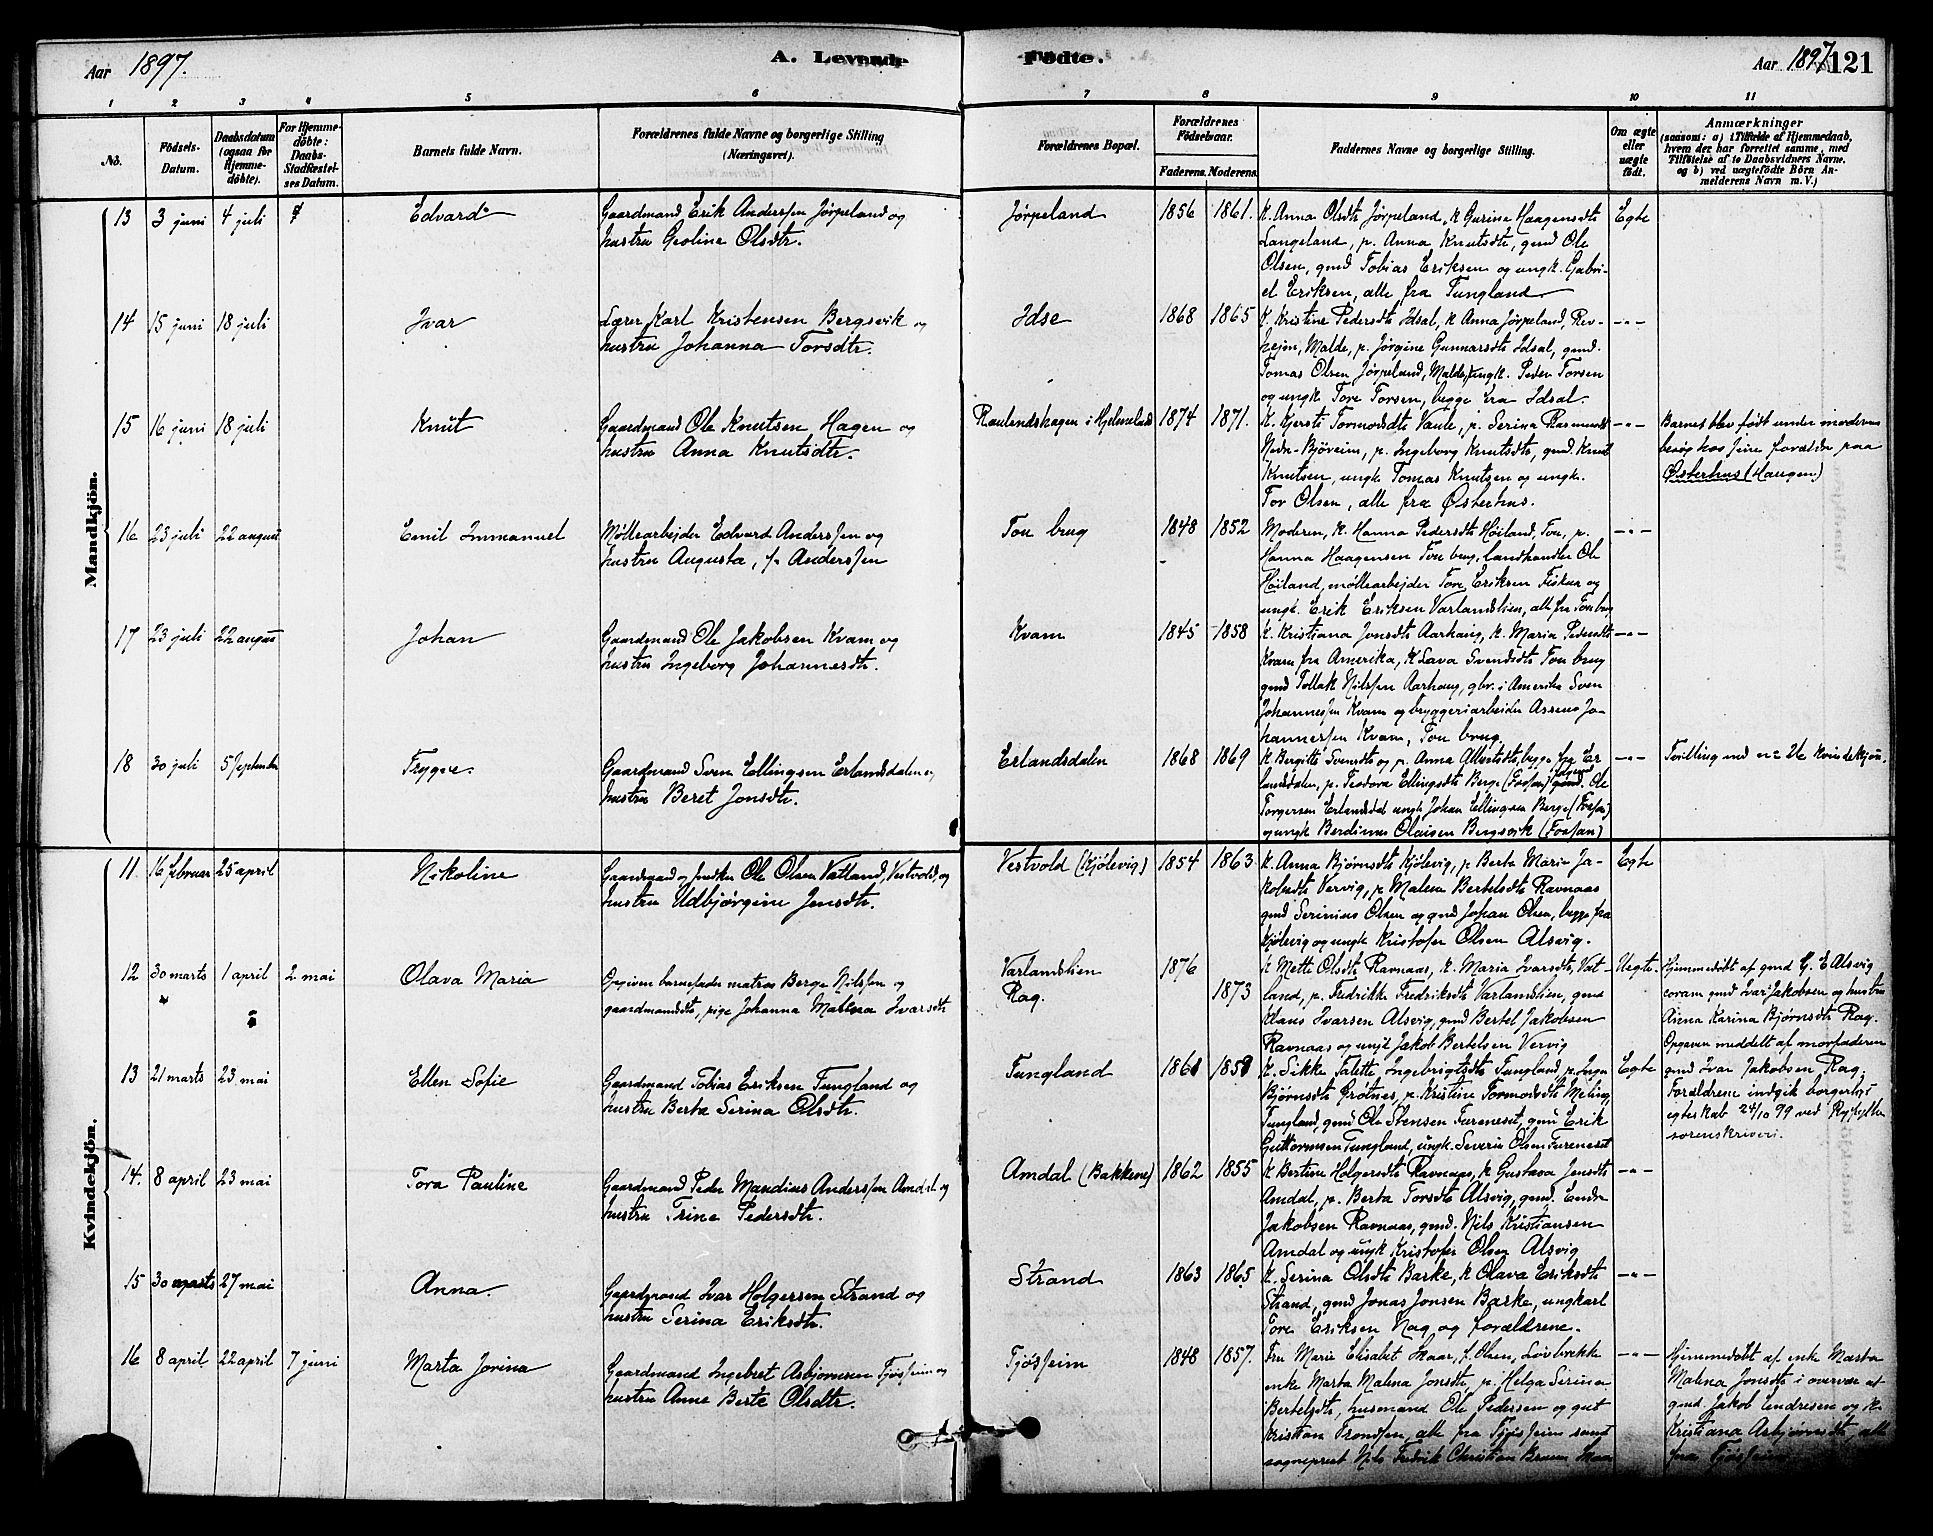 Aar 1897.
A. Levende Fødte.
Aar 1897 121
1 2 3 4 5 6 7 8 9 10 11
No.
Fødsels-
Datum.
Daabsdatum
(ogsaa for
Hjemme-
døbte).
For Hjemme-
døbte:
Daabs-
Stadfæstel-
ses Datum.
Barnets fulde Navn.
Forældrenes fulde Navne og borgerlige Stilling
(Næringsvei).
Forældrenes Bopæl.
Forældrenes
Fødselsaar.
Faderens. Moderens.
Faddernes Navne og borgerlige Stilling.
Om ægte
eller
uægte
født.
Anmærkninger
(saasom: a) i Tilfælde af Hjemmedaab,
hvem der har forrettet samme, med
Tilføielse af to Daabsvidners Navne,
og b) ved uægtefødte Børn An-
melderens Navn m. V.)
Mandkjön.
13 3 juni 4 juli Edvard
Gaardmand Erik Anderssen Jørpeland og
hustru Geoline Olsdtr.
Jørpeland 1856 1861.
K. Anna Olsdtr Jørpeland, K Gurine Haagensdtr
Langeland, p. Anna Knutsdtr, gmd Ole
Olsen, gmd Tobias Eriksen og ungk. Gabri-
el Eriksen, alle fra Tungland
Egte
14 15 juni 18 juli Ivar
Lærer Karl Kristensen Bergsvik og
hustru Johanna Torsdtr.
Idse 1868 1865
K. Kristine Pedersdtr Idsal, K Anna Jørpeland, Rev-
hejen, Malde, p. Jørgine Gunnarsdtr Idsal, gmd.
Tomas Olsen Jørpeland, Malde, ungk. Peder Torsen
og ungk Tore Torsen, begge fra Idsal.
-"-
15 16 juni 18 juli Knut
Gaardmand Ole Knutsen Hagen og
hustru Anna Knutsdtr.
i Hjelmeland 1874 1871.
K. Kjersti Tormodsdtr Vaule, p. Serina Rasmusdt
p. Ingeborg Knutsdtr, gmd. Knut
Knutsen, ungk Tomas Knutsen og ungk.
Tor Olsen, alle fra Østerhus.
-"-
Barnet blev født under moderens
besøg hos sine forældre paa
Østerhus (Haugen)
16 23 juli 22 august Emil Immanuel
Møllearbejder Edvard Anderssen og
hustru Augusta, f. Anderssen
Tou brug 1848 1852
Moderen, K. Hanna Pedersdtr Høiland, Tou, p.
Hanna Haagensen Tou brug, landhandler Ole
Høiland, møllearbejder Tore Eriksen Fisker og
ungk. Erik Eriksen Varlandslien, alle fra Tou brug
-"-
17 23 juli 22 august Johan
Gaardmand Ole Jakobsen Kvam og
hustru Ingeborg Johannesdtr.
Kvam 1845 1858
K. Kristiana Jonsdtr Aarhaug, K. Maria Pedersdtr
Kvam fra Amerika, K Lava Svendsdtr Tou brug
gmd Tollak Nilssen Aarhaug, gbr. i Amerika Sven
Johannessen Kvam og bryggeriarbeider Jo-
hannessen Kvam, Tou brug.
-"-
18 30 juli 5 September Trygve.
Gaardmand Sven Ellingsen Erlandsdalen og
hustru Beret Jonsdtr.
Erlandsdalen 1868 1869
K Bergitte Svendsdtr og p. Anna begge fra Er-
landsdalen, p. Teodora Ellingsdtr Berge (Fossan) gmd. Ole
Torgersen Erlandsdal ungk Johan Ellingsen Berge (Fossan)
og ungk Berdinus Olaisen Bergsvik (Fossan)
-"-
Tvilling med no 26 kvindekjøn.
Kvindekjön.
11. 16 februar 25 april Nikoline
Gaardmand og snedker Ole Olsen Vatland, Vestvold, og
hustru Udbjørgine Jensdtr.
Vestvold (Kjølevig) 1854 1863
K. Anna Bjørnsdtr Kjølevig, p. Berta Maria Ja-
kobsdtr Vervig, p Malene Bertelsdtr Ravnaas
gmd Serinius Olsen og gmd Johan Olsen, begge fra
Kjølevig og ungk Kristofer Olsen Alsvig.
Egte
12 30 marts 1 april 2 mai Olava Maria
Opgiven barnefader matros Berge Nilssen og
gaardmandsdtr, pige Johanna Malena Ivarsdtr
Varlandslien
Rag.
1876
1873
K Mette Olsdtr Ravnaas, K. Maria Ivarsdtr, Vat-
land, p. Fredrikke Fredriksdtr Varlandslien, gmd
Klaus Ivarsen Alsvig, gmd Bertel Jakobsen
Ravnaas og ungk Jakob Bertelsen Vervig
Uegte.
Hjemmedøbt af gmd G. E Alsvig
coram gmd Ivar Jakobsen og hustru
Karina Bjørnsdtr Rag.
Opgaven meddelt af morfaderen
gmd Ivar Jakobsen Rag.
Forældrene indgik borgerligt
egteskab 24/10 99 ved Ryfylke
sorenskriveri.
13 21 marts 23 mai Ellen Sofie
Gaardmand Tobias Eriksen Tungland og
hustru Berta Serina Olsdtr.
Tungland 1861 1859
K. Sikke Talette Ingebrigtsdtr Tungland, p. Inga
Bjørnsdtr Grøtnes, p. Kristine Tormodsdtr Meling,
Tungland, gmd Ole Stensen Fureneset, gmd Erik
Guttormsen Tungland, ungk. Severin Olsen Fureneset
Egte
14. 8 april 23 mai Tora Pauline
Gaardmand Peder Mandius Anderssen Amdal og
hustru Trine Pedersdtr.
Amdal (Bakkene) 1862 1855
K Bertine Holgersdtr Ravnaas, K Gustava Jensdtr
Amdal, p. Berta Torsdtr Alsvig, gmd. Endre
Jakobsen Ravnaas, gmd. Nils Kristiansen
Amdal og ungk Kristofer Olsen Alsvig
-"-
15 30 marts 27 mai Anna.
Gaardmand Ivar Holgersen Strand og
hustru Serina Eriksdtr.
Strand 1863 1865
K. Serina Olsdtr Barke, K Olava Eriksdtr
Strand, gmd Jonas Jonsen Barke, ungkarl
Tore Eriksen Nag og forældrene.
-"-
16 8 april 22 april 7 juni Marta Jorina
Gaardmand Ingebret Asbjørnsen Tjøssheim og
hustru Anne Berte Olsdtr.
Tjøssheim 1848 1857.
Fru Marie Elisabet Skaar, f. Olsen, Løvbrække
enke Marta Malena Jonsdtr, p. Helga Serina
Bertelsdtr, husmand Ole Pedersen og gut
Kristian Trondsen, alle fra Tjøssheim samt
sogneprest Nils Fredrik Christian Bruun
-"-
Hjemmedøbt af enke Marta
Malena Jonsdtr i overvær af
gmd Jakob Endresen og K.
Kristiana Asbjørnsdtr, alle
fra Tjøssheim